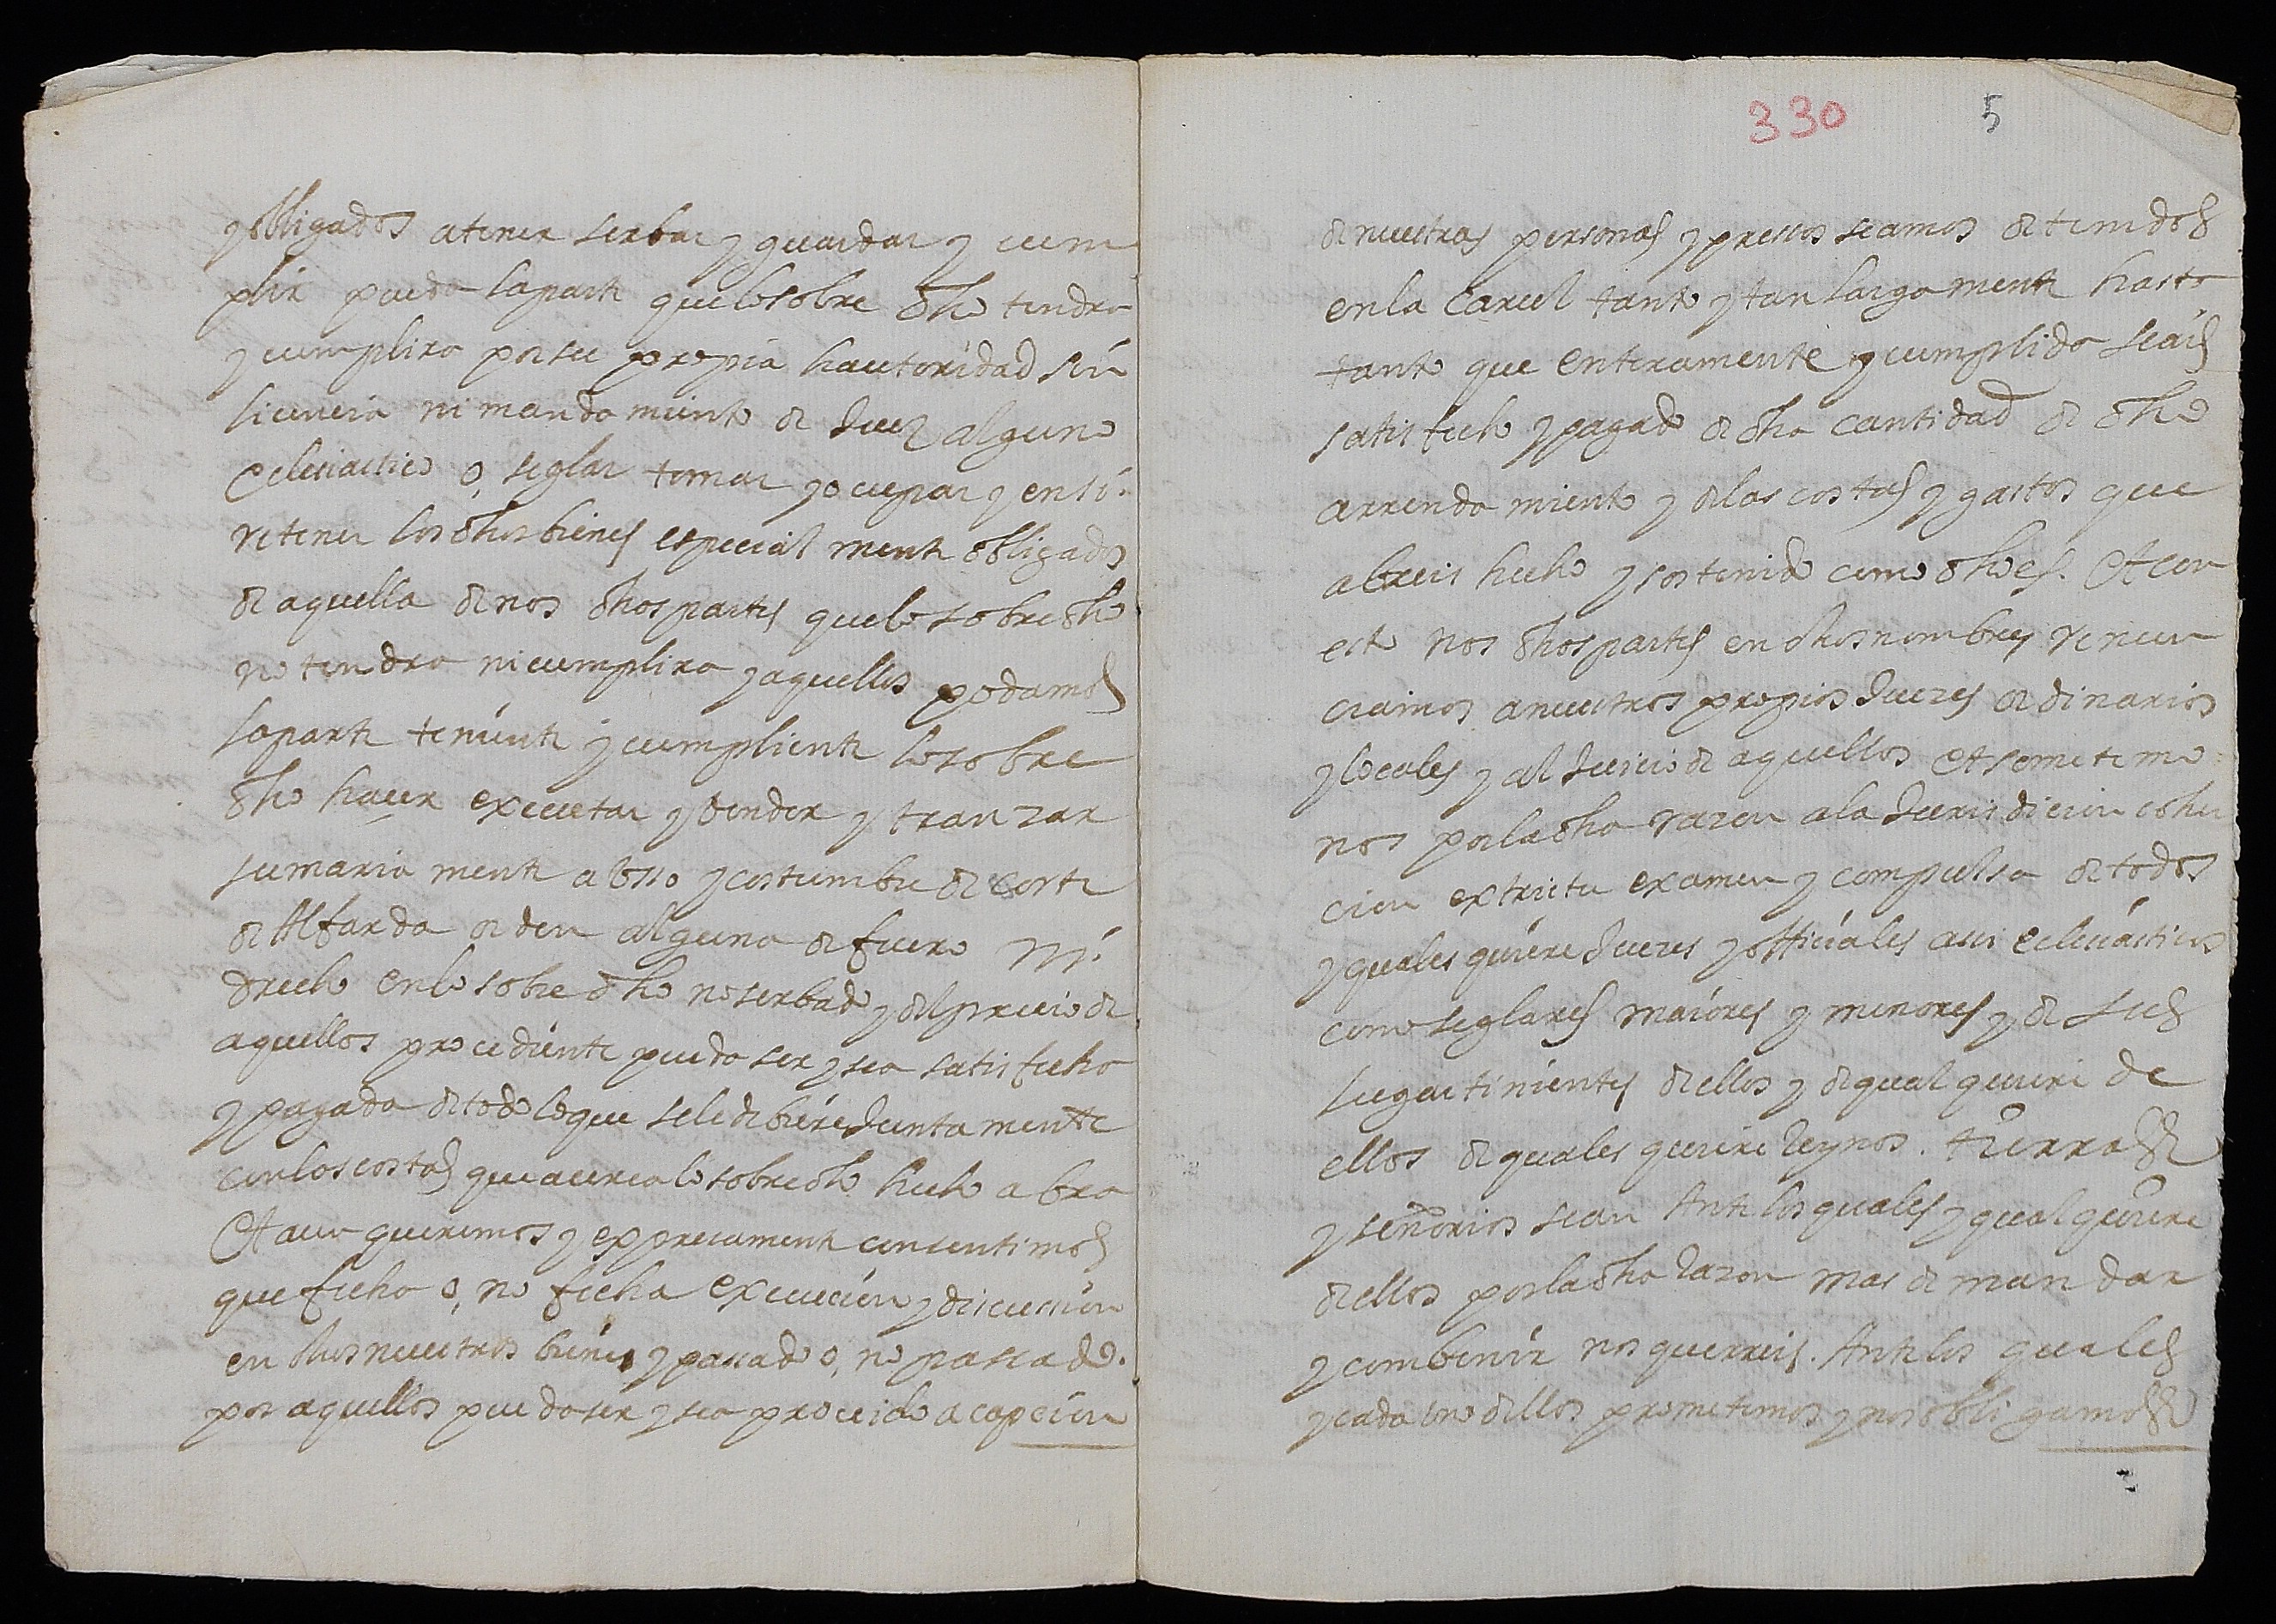 y obligados a tener serbar y guardar y cum
plir pueda la parte que lo sobre dho tendra
y cumplira por su propia hautoridad sin
licencia ni mandamiento de Juez alguno
eclesiastico o, seglar tomar y ocupar y en si
retener los dhos bienes especial mente obligados
de aquella de nos dhos partes que lo sobre dho
no tendra ni cumplira y aquellos podamos
la parte teniente y cumpliente lo sobre
dho hacer executar y vender y tranzar
sumaria mente a usso y costumbre de corte
de Alfarda orden alguna de fuero Ni
drecho en lo sobre dho no serbada y del precio de
aquellos procediente pueda ser y sea satisfecha
y pagada de todo lo que se le debiere Junta mente
con los costas que acerca lo sobre dho hecho abra
Et aun queremos y expresamente consentimos
que fecha o, no fecha execucion y discusion
en dhos nuestros bienes y passado o, no passado.
por aquellos pueda ser y sea proceido a capcion
330 5
de nuestras personas y pressos seamos detenidos
en la Carcel tanto y tan larga mente hasta
tanto que enteramente y cumplida seais
satisfecho y pagado de dha cantidad de dho
arrenda miento y de las costas y gastos que
abreis hecho y sostenido como dho es. Et con
esto nos dhos partes en dhos nombres renun
ciamos a nuestros propios Juezes ordinarios
y locales y al Juicio de aquellos et sometemo
nos por la dha razon a la Jurisdicion coher
cion extrictu examen y compulsa de todos
y quales quiere Juezes y officiales assi eclesiasticos
como seglares maiores y menores y de sus
lugartinientes de ellos y de qual quiere de
ellos de quales quiere Reynos. tierras
y señorios sean Ante los quales y qual quiere
de ellos por la dha Razon mas demandar
y combenir nos querreis. Ante los quales
y cada uno dellos prometemos y nos obligamos